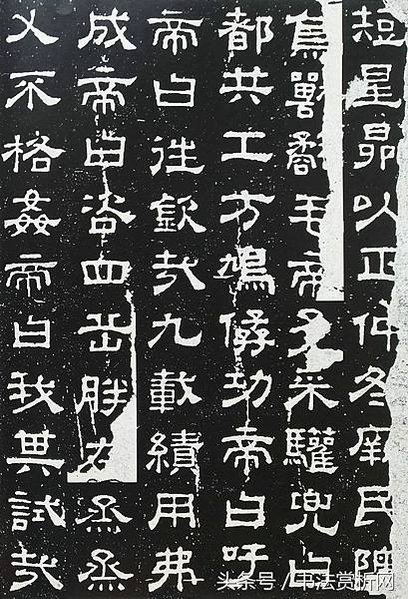 短星昴以正仲冬厥民隩
鳥獸氄毛帝予采驩兜曰
都共工方鳩僝功帝曰吁
帝曰往欽哉九載績用弗
成帝曰咨四岳朕烝烝
乂不格姦帝曰我其試哉
头条号/书法赏析网